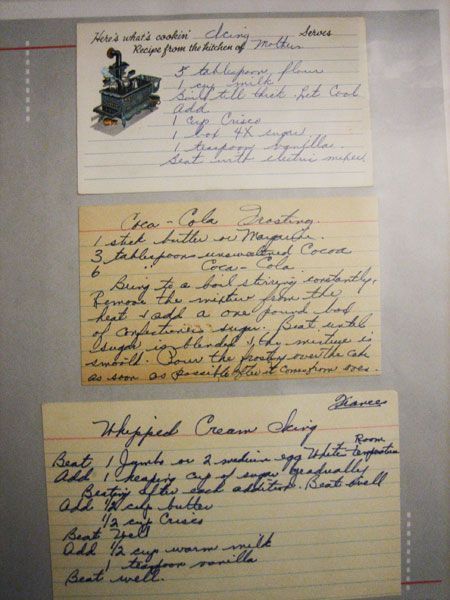 Here's what's cookin' Icing Serves
Recipe from the kitchen of Mother
5 tablespoon flour
1 cup milk
Boil till thick. Let Cool
Add
1 cup Crisco
1 box 4X sugar
1 teaspoon vanilla
Beat with electric mixer.
Coca-Cola Frosting
1 stick butter or Margarine
3 tablespoons unsweetened Cocoa
6 " Coca-Cola
Bring to a boil stirring constantly.
Remove the mixture from the
heat & add a one pound box
of confectioners sugar. Beat until
sugar is blended & the mixture is
smooth. Pour the frosting over the cake
as soon as possible after it comes from oven.
Frances
Whipped Cream Icing
Beat 1 Jumbo or 2 medium egg White Room temperature
Add 1 heaping cup of sugar gradually
Beating after each addition. Beat well
Add 1/2 cup butter
1/2 cup Crisco
Beat Well
Add 1/2 cup warm milk
1 teaspoon vanilla
Beat well.